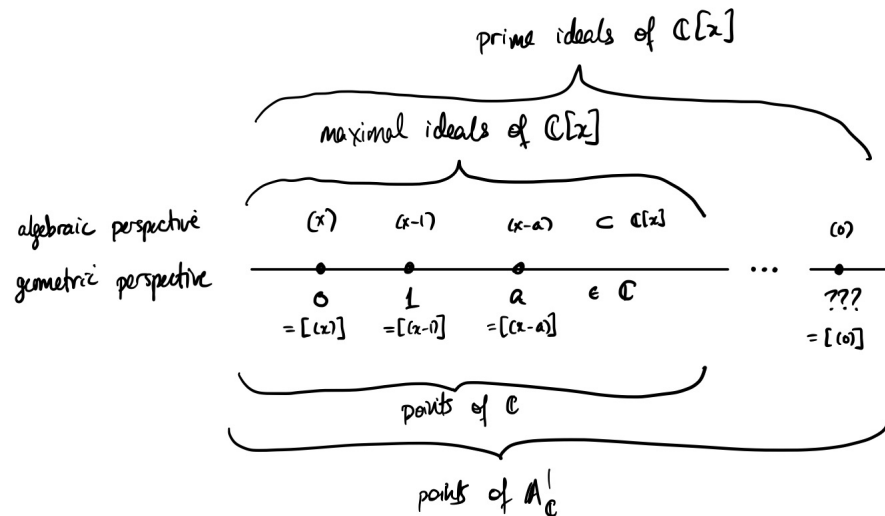 prime ideals of ℂ[x]
maximal ideals of ℂ[x]
algebraic perspective (x) (x-1) (x-a) ⊂ ℂ[x] (0)
geometric perspective ...
0 1 a ∈ ℂ ???
=[(x)] =[(x-1)] =[(x-a)] =[(0)]
points of ℂ
points of 𝔸¹_ℂ